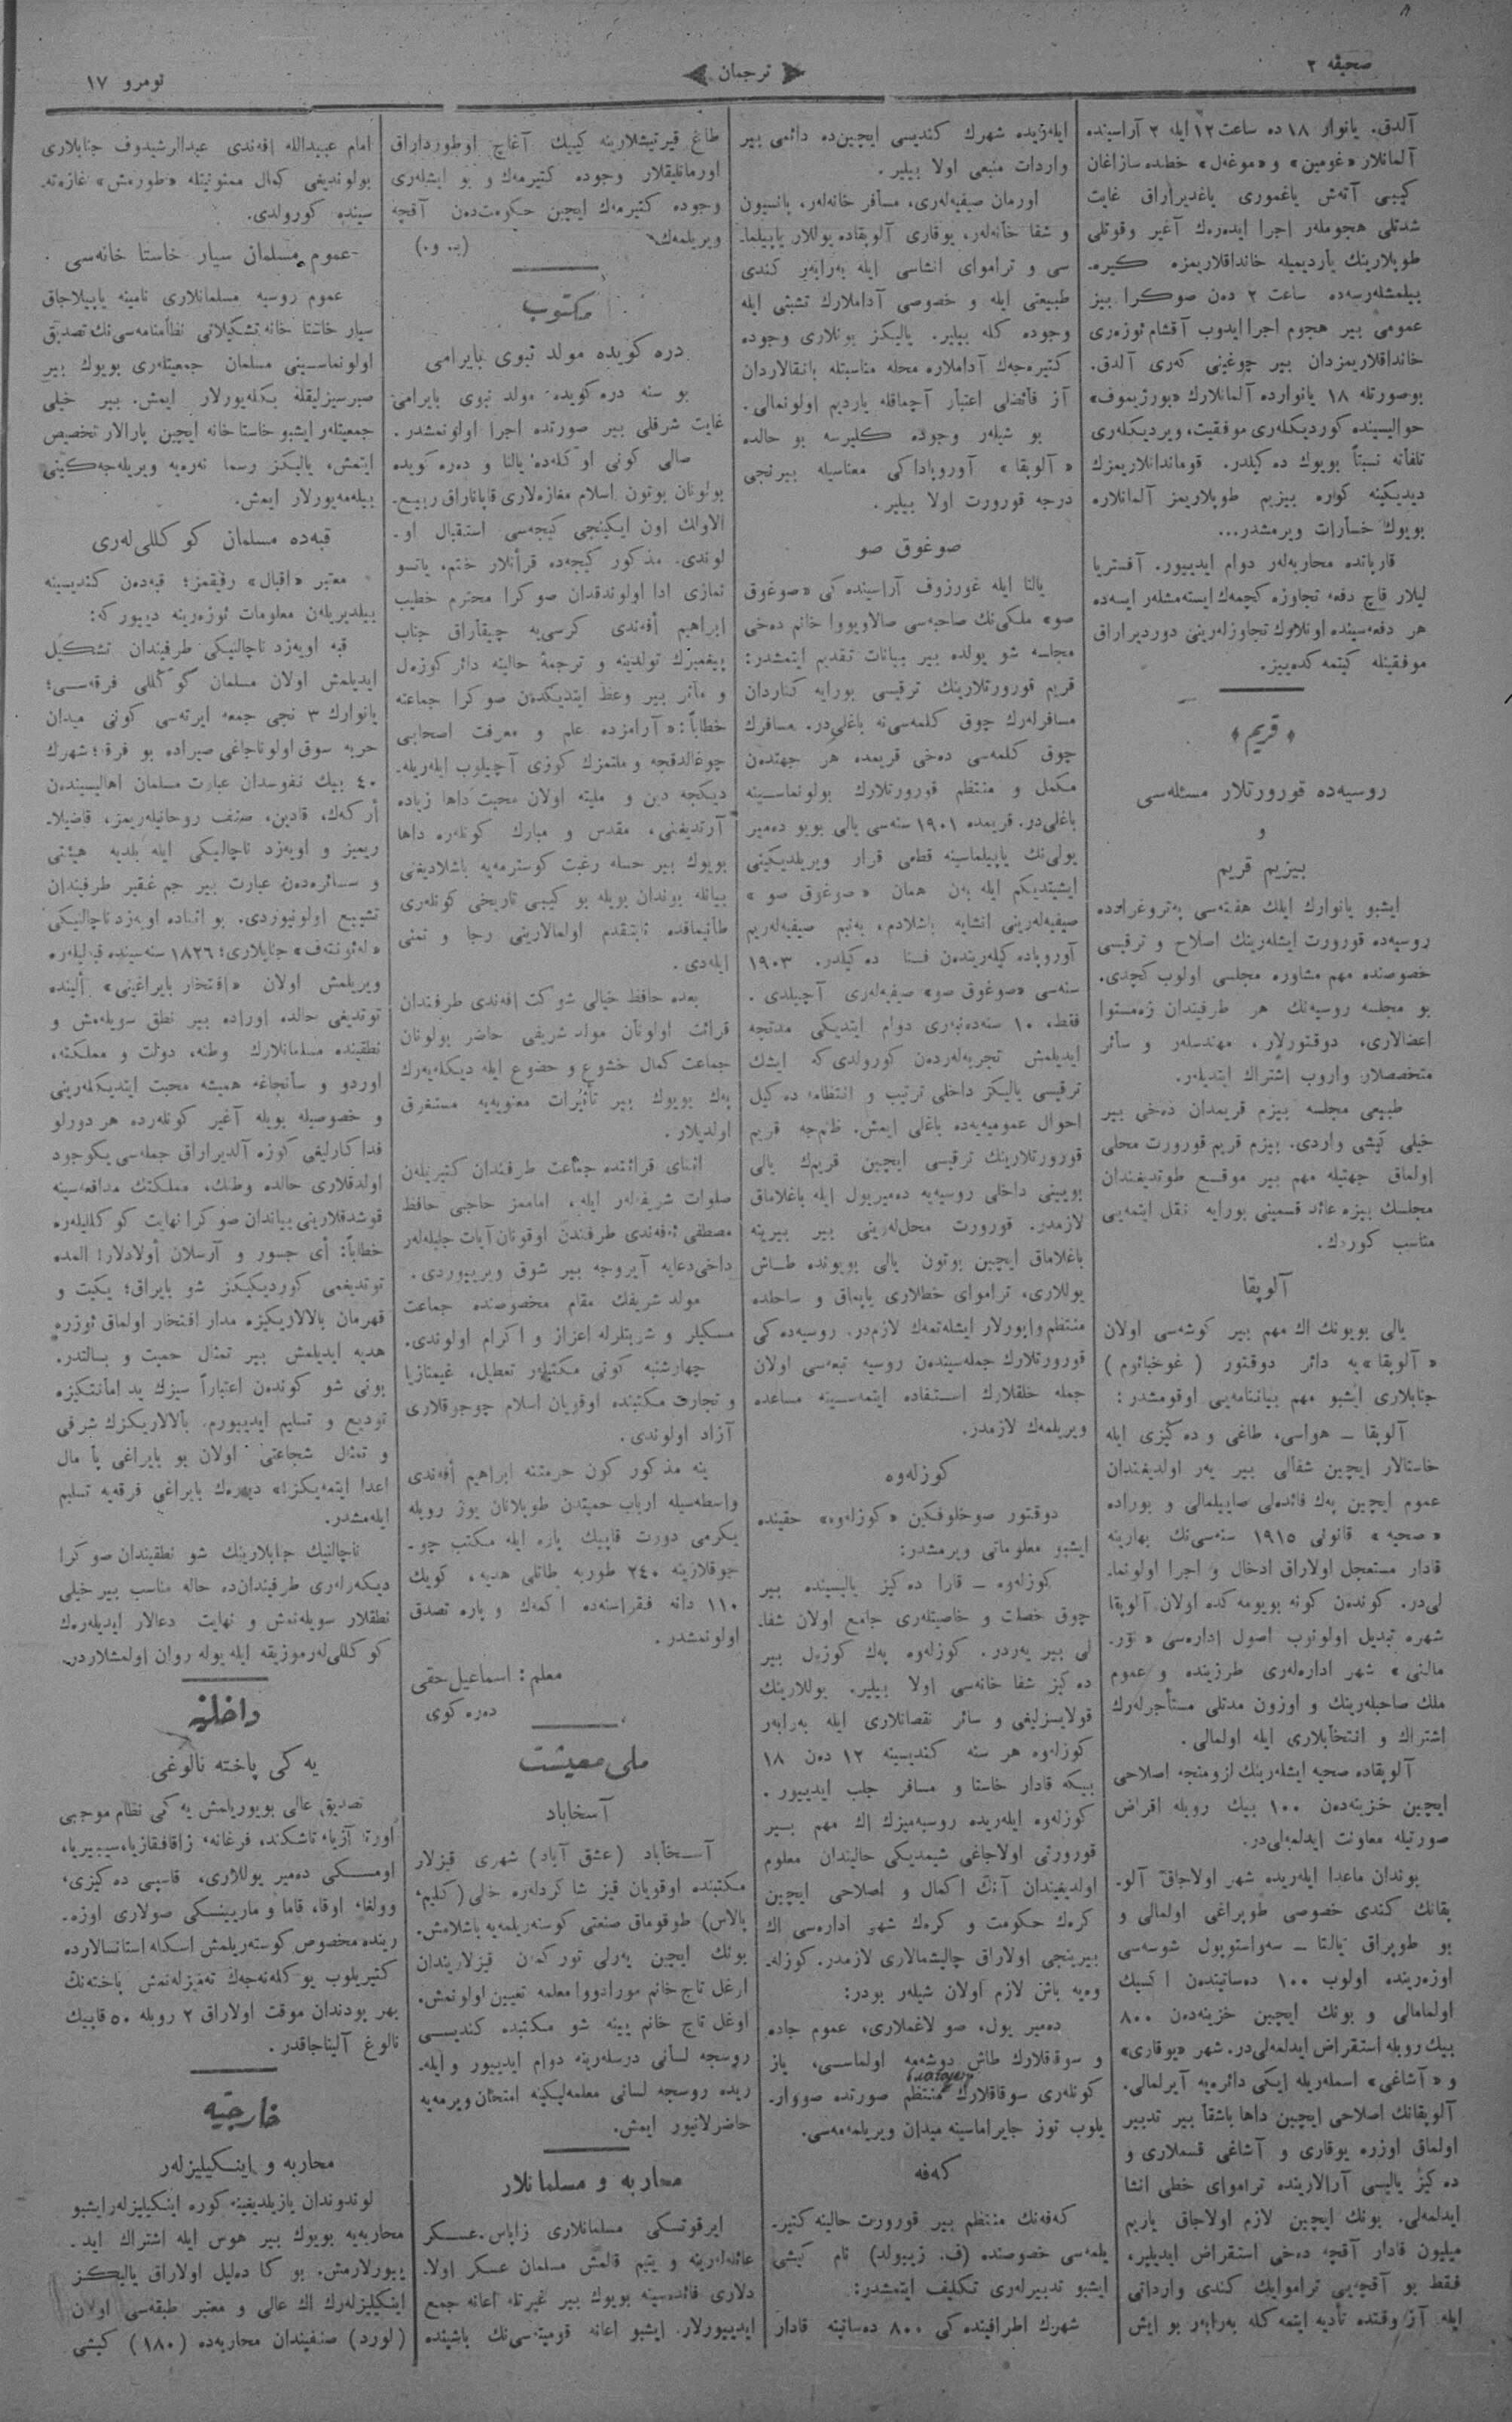 صحیفه ۲
ترجمان
نومرو ۱۷
آلدق. یانوار ۱۸ ده ساعت ۱۲ ایله ۲ آراسینده
آلمانلار «غومین» و «موغەل» خطده سازاغان
کیبی آتەش یاغموری یاغدیراراق غایت
شدتلی هجوملەر اجرا ایدەرەك آغیر وقوتلی
طوپلارینك یاردیمیله خانداقلاریمزه کیره-
بیلمشلەرسەده ساعت ۲ دەن صوکرا بیز
عمومی بیر هجوم اجرا ایدوب آقشام ئوزەری
خانداقلاریمزدان بیر چوغینی کەری آلدق.
بوصورتله ۱۸ یانوارده آلمانلارك «بورژیموف»
حوالیسینده کوردیکلەری موفقیت، ویردیکلەری
تلفاته نسبتاً بویوك دەکیلدر. قوماندانلاریمزك
دیدیکینه کوره بیزیم طوپلاریمز آلمانلاره
بویوك خسارات ویرمشدر...
قارپاتده محاربەلەر دوام ایدییور. آفستریا
لیلار قاچ دفعه تجاوزه کچمەك ایستەمشلەر ایسەده
هر دفعەسینده اونلاوك تجاوزلەرینی دوردیراراق
موفقیتله کیتمەکدەییز.
﴿ قریم ﴾
روسیەده قورورتلار مسئلەسی
و
بیزیم قریم
ایشبو یانوارك ایلك هفتەسی پەتروغرادده
روسیەده قورورت ایشلەرینك اصلاح و ترقیسی
خصوصنده مهم مشاوره مجلسی اولوب کچدی.
بو مجلسه روسیەنك هر طرفیندان زەمستوا
اعضالاری، دوقتورلار، مهندسلەر و سائر
متخصصلار واروب اشتراك ایتدیلەر.
طبیعی مجلسه بیزم قریمدان دەخی بیر
خیلی کیشی واردی. بیزم قریم قورورت محلی
اولماق جهتیله مهم بیر موقع طوتدیغندان
مجلسك بیزه عائد قسمینی بورایه نقل ایتمەیی
مناسب کوردك.
آلوپقا
یالی بویونك اك مهم بیر کوشەسی اولان
«آلوپقا» یه دائر دوقتور (غوخبائوم)
جنابلاری ایشبو مهم بیاننامەیی اوقومشدر:
آلوپقا ــ هواسی، طاغی و دەکیزی ایله
خاستالار ایچین شفالی بیر یەر اولدیغندان
عموم ایچین پەك فائدەلی صاییلمالی و بوراده
«صحیه» قانونی ۱۹۱۵ سنەسی‌نك بهارینه
قادار مستعجل اولاراق ادخال و اجرا اولونما-
لی‌در. کوندەن کونه بویومەکده اولان آلوپقا
شهره تبدیل اولونوب اصول ادارەسی «نور-
مالنی» شهر ادارەلەری طرزینده و عموم
ملك صاحبلەرینك و اوزون مدتلی مستأجرلەرك
اشتراك و انتخابلاری ایله اولمالی.
آلوپقاده صحیه ایشلەرینك لزومنجه اصلاحی
ایچین خزینەدەن ۱۰۰ بیك روبله اقراض
صورتیله معاونت ایدلمەلی‌در.
بوندان ماعدا ایلەریده شهر اولاجاق آلو-
پقانك کندی خصوصی طوپراغی اولمالی و
بو طوپراق یالتا ــ سەواستوپول شوسەسی
اوزەرینده اولوب ۱۰۰ دەساتیندەن اکسیك
اولمامالی و بونك ایچین خزینەدەن ۸۰۰
بیك روبله استقراض ایدلمەلی‌در. شهر «یوقاری»
و «آشاغی» اسملەریله ایکی دائرەیه آیرلمالی.
آلوپقانك اصلاحی ایچین داها باشقا بیر تدبیر
اولماق اوزره یوقاری و آشاغی قسملاری و
دەکیز یالیسی آرالارینده تراموای خطی انشا
ایدلمەلی. بونك ایچین لازم اولاجاق یاریم
میلیون قادار آقچه دەخی استقراض ایدیلیر،
فقط بو آقچەیی تراموایك کندی وارداتی
ایله آز وقتده تأدیه ایتمەکله بەرابەر بو ایش
ایلەزیده شهرك کندیسی ایچین‌ده دائمی بیر
واردات منبعی اولا بیلیر.
اورمان صیفیەلەری، مسافر خانەلەر، پانسیون
و شفا خانەلەر، یوقاری آلوپقاده یوللار یاپیلما-
سی و تراموای انشاسی ایله بەرابەر کندی
طبیعتی ایله و خصوصی آداملارك تشبثی ایله
وجوده کله بیلیر. یالیکز بونلاری وجوده
کتیرەجەك آداملاره محله مناسبتله بانقالاردان
آز فائضلی اعتبار آچماقله یاردیم اولونمالی.
بو شیلەر وجوده کلیرسه بو حالده
«آلوپقا» آوروپاداکی معناسیله بیرنجی
درجه قورورت اولا بیلیر.
صوغوق صو
یالتا ایله غورزوف آراسینده‌کی «صوغوق
صو» ملکی‌نك صاحبەسی صالاویووا خانم دەخی
مجلسه شو یولده بیر بیانات تقدیم ایتمشدر:
قریم قورورتلارینك ترقیسی بورایه کناردان
مسافرلەرك چوق کلمەسی‌نه باغلی‌در. مسافرك
چوق کلمەسی دەخی قریمده هر جهتدەن
مکمل و منتظم قورورتلارك بولونماسینه
باغلی‌در. قریمده ۱۹۰۱ سنەسی یالی بویو دەمیر
یولی‌نك یاپیلماسینه قطعی قرار ویریلدیکینی
ایشیتدیکم ایله بەن همان «صوغوق صو»
صیفیەلەرینی انشایه باشلادم، بەنیم صیفیەلەریم
آوروپاده‌کیلەریندەن فنا دەکیلدر. ۱۹۰۳
سنەسی «صوغوق صو» صیفیەلەری آچیلدی.
فقط، ۱۰ سنەدەنبەری دوام ایتدیکی مدتجه
ایدیلمش تجربەلەردەن کورولدی‌که ایشك
ترقیسی یالیکز داخلی ترتیب و انتظامه دەکیل
احوال عمومیەیه‌ده باغلی ایمش. ظنمجه قریم
قورورتلارینك ترقیسی ایچین قریمك یالی
بویینی داخلی روسیەیه دەمیریول ایله باغلاماق
لازمدر. قورورت محل‌لەرینی بیر بیرینه
باغلاماق ایچین بوتون یالی بویونده طاش
یوللاری، تراموای خطلاری یاپماق و ساحلده
منتظم واپورلار ایشلەتمەك لازم‌در. روسیەده‌کی
قورورتلارك جملەسیندەن روسیه تبعەسی اولان
جمله خلقلارك استفاده ایتمەسینه مساعده
ویریلمەك لازمدر.
کوزلەوه
دوقتور صوخلوفکین «کوزلەوه» حقینده
ایشبو معلوماتی ویرمشدر:
کوزلەوه ــ قارا دەکیز یالیسینده بیر
چوق خصلت و خاصیتلەری جامع اولان شفا-
لی بیر یەردر. کوزلەوه پەك کوزەل بیر
دەکیز شفا خانەسی اولا بیلیر. یوللارینك
قولایسزلیغی و سائر نقصانلاری ایله بەرابەر
کوزلەوه هر سنه کندیسینه ۱۲ دەن ۱۸
بیکه قادار خاستا و مسافر جلب ایدییور.
کوزلەوه ایلەریده روسیەمیزك اك مهم بیر
قورورتی اولاجاغی شیمدیکی حالیندان معلوم
اولدیغیندان آنك اکمال و اصلاحی ایچین
کرەك حکومت و کرەك شهر ادارەسی اك
بیرینجی اولاراق چالیشمالاری لازمدر. کوزلە-
وەیه باش لازم اولان شیلەر بودر:
دەمیر یول، صو لاغملاری، عموم جاده
و سوقاقلارك طاش دوشەمه اولماسی، یاز
کونلەری سوقاقلارك منتظم صورتده صووار-
یلوب توز جایراماسینه میدان ویریلمەمەسی.
کەفه
کەفەنك منتظم بیر قورورت حالینه کتیر-
یلمەسی خصوصنده (ف. زیبولد) نام کیشی
ایشبو تدبیرلەری تکلیف ایتمشدر:
شهرك اطرافینده‌کی ۸۰۰ دەساتینه قادار
طاغ قیرتیشلارینه کییك آغاچ اوطورداراق
اورمانلیقلار وجوده کتیرمەك و بو ایشلەری
وجوده کتیرمەك ایچین حکومت‌دەن آقچه
ویریلمەك.
(ید. و.)
مکتوب
دره کویده مولد نبوی بایرامی
بو سنه دره کویده مولد نبوی بایرامی
غایت شرفلی بیر صورتده اجرا اولونمشدر.
صالی کونی اوکلەده یالتا و دەره کویده
بولونان بوتون اسلام مغازەلاری قاپاناراق ربیع-
الاولك اون ایکینجی کیجەسی استقبال او-
لوندی. مذکور کیجەده قرأنلار ختم، یاتسو
نمازی ادا اولوندقدان صوکرا محترم خطیب
ابراهیم أفەندی کرسی‌یه چیقاراق جناب
پیغمبرك تولدینه و ترجمهٔ حالینه دائر کوزەل
و مأثر بیر وعظ ایتدیکدەن صوکرا جماعته
خطاباً: «آرامزده علم و معرفت اصحابی
چوغالدقجه و ملتمزك کوزی آچیلوب ایلەریلە-
دیکجه دین و ملیته اولان محبت داها زیاده
آرتدیغنی، مقدس و مبارك کونلەره داها
بویوك بیر حسله رغبت کوسترمەیه باشلادیغنی
بیانله بوندان بویله بو کیبی تاریخی کونلەری
طانیماقده ثابتقدم اولمالارینی رجا و تمنی
ایلەدی.
بعده حافظ خیالی شوکت افەندی طرفندان
قرائت اولونان مولد شریفی حاضر بولونان
جماعت کمال خشوع و حضوع ایله دیکلەیەرك
پەك بویوك بیر تأثیرات معنویەیه مستغرق
اولدیلار.
اثنای قرائتده جماعت طرفندان کتیریلەن
صلوات شریفەلەر ایله، امامز حاجی حافظ
مصطفی ئەفەندی طرفندن اوقونان آیات جلیلەلەر
داخی‌دعایه آیروجه بیر شوق ویرییوردی.
مولد شریفك مقام مخصوصنده جماعت
مسکیلر و شربتلرله اعزاز و اکرام اولوندی.
چهارشنبه کونی مکتبلەر تعطیل، غیمنازیا
و تجارت مکتبنده اوقویان اسلام چوجوقلاری
آزاد اولوندی.
ینه مذکور کون حرمتنه ابراهیم أفەندی
واسطەسیله ارباب حمیتدن طوپلانان یوز روبله
یکرمی دورت قاپیك پاره ایله مکتب چو-
جوقلارینه ۲۴۰ طوربه طاتلی هدیه، کویك
۱۱۰ دانه فقراسنەده اکمەك و پاره تصدق
اولونمشدر.
معلم: اسماعیل حقی
دەره کوی
ملی معیشت
آسخاباد
آسخاباد (عشق آباد) شهری قیزلار
مکتبنده اوقویان قیز شاکردلەره خلی (کلیم،
پالاس) طوقوماق صنعتی کوستەریلمەیه باشلامش.
بونك ایچین یەرلی تورکمەن قیزلاریندان
ارغل تاج خانم مورادووا معلمه تعیین اولونمش.
اوغل تاج خانم یینه شو مکتبده کندیسی
روسجه لسانی درسلەرینه دوام ایدییور و ایلە-
ریده روسجه لسانی معلمەلیکینه امتحان ویرمەیه
حاضرلانیور ایمش.
محاربه و مسلمانلار
ایرقوتسکی مسلمانلاری زاپاس-عسکر
عائلەلەرینه و یتیم قالمش مسلمان عسکر اولا-
دلاری فائدەسینه بویوك بیر غیرتله اعانه جمع
ایدییورلار. ایشبو اعانه قومیتەسی‌نك باشینده
امام عبیدالله افەندی عبدالرشیدوف جنابلاری
بولوندیغی کمال ممنونیتله «طورمش» غازەتە-
سینده کورولدی.
-عموم مسلمان سیار خاستا خانەسی
عموم روسیه مسلمانلاری نامینه یاپیلاجاق
سیار خاستا خانه تشکیلاتی نظامنامەسی‌نك تصدیق
اولونماسینی مسلمان جمعیتلەری بویوك بیر
صبرسیزلیقله بکلەیورلار ایمش. بیر خیلی
جمعیتلەر ایشبو خاستا خانه ایچین پارالار تخصیص
ایتمش، یالیکز رسما نەرەیه ویریلەجەکینی
بیلەمەیورلار ایمش.
قبەده مسلمان کوکللی‌لەری
معتبر «اقبال» رفیقمز؛ قبەدەن کندیسینه
بیلدیریلەن معلومات ئوزەرینه دییورکه:
قبه اویەزد ناچالنیکی طرفیندان تشکیل
ایدیلمش اولان مسلمان کوکللی فرقەسی؛
یانوارك ۳ نجی جمعه ایرتەسی کونی میدان
حربه سوق اولوناجاغی صیراده بو فرقه؛ شهرك
۴۰ بیك نفوسدان عبارت مسلمان اهالیسیندەن
أرکەك، قادین، صنف روحانیلەریمز، قاضیلا-
ریمیز و اویەزد ناچالنیکی ایله بلدیه هیئتی
و سائرەدەن عبارت بیر جم غفیر طرفیندان
تشییع اولونیوردی. بو اثناده اویەزد ناچالنیکی
«لەئونتەف» جنابلاری؛ ۱۸۲۶ سنەسینده قبەلیلەره
ویریلمش اولان «افتخار بایراغینی» ألینده
توتدیغی حالده اوراده بیر نطق سویلەمش و
نطقینده مسلمانلارك وطنه، دولت و مملکته،
اوردو و سانجاغه همیشه محبت ایتدیکلەرینی
و خصوصیله بویله آغیر کونلەرده هر دورلو
فداکارلیغی کوزه آلدیراراق جملەسی یکوجود
اولدقلاری حالده وطنك، مملکتك مدافعەسینه
قوشدقلارینی بیاندان صوکرا نهایت کوکللیلەره
خطاباً: أی جسور و آرسلان أولادلار! المده
توتدیغمی کوردیکیکز شو بایراق؛ یکیت و
قهرمان بالالاریکیزه مدار افتخار اولماق ئوزره
هدیه ایدیلمش بیر تمثال حمیت و بسالتدر.
بونی شو کوندەن اعتباراً سیزك ید امانتکیزه
تودیع و تسلیم ایدییورم. بالالاریکزك شرفی
و تمثال شجاعتی اولان بو بایراغی پامال
اعدا ایتمەیکز!» دیەرەك بایراغی فرقەیه تسلیم
ایلەمشدر.
ناچالنیك جنابلارینك شو نطقیندان صوکرا
دیکەرلەری طرفیندان‌ده حاله مناسب بیر خیلی
نطقلار سویلەنمش و نهایت دعالار ایدیلەرەك
کوکللی‌لەر موزیقه ایله یوله روان اولمشلاردر.
داخلیه
یەکی پاخته نالوغی
تصدیق عالی بویوریلمش یەکی نظام موجبی
اورتا آزیا، تاشکند، فرغانه، زاقافقازیا، سیبیریا،
اومسکی دەمیر یوللاری، قاسپی دەکیزی،
وولغا، اوقا، قاما و ماریینسکی صولاری اوزە-
رینده مخصوص کوستەریلمش اسکله استانسالارده
کتیریلوب یوکلەنەجەك تەمیزلەنمش پاختەنك
بهر پودندان موقت اولاراق ۲ روبله ۵۰ قاپیك
نالوغ آلیناجاقدر.
خارجیه
محاربه و اینکیلیزلەر
لوندوندان یازیلدیغینه کوره اینکیلیزلەر ایشبو
محاربەیه بویوك بیر هوس ایله اشتراك اید-
ییورلارمش. بوکا دەلیل اولاراق یالیکز
اینکیلیزلەرك اك عالی و معتبر طبقەسی اولان
(لورد) صنفیندان محاربەده (۱۸۰) کیشی